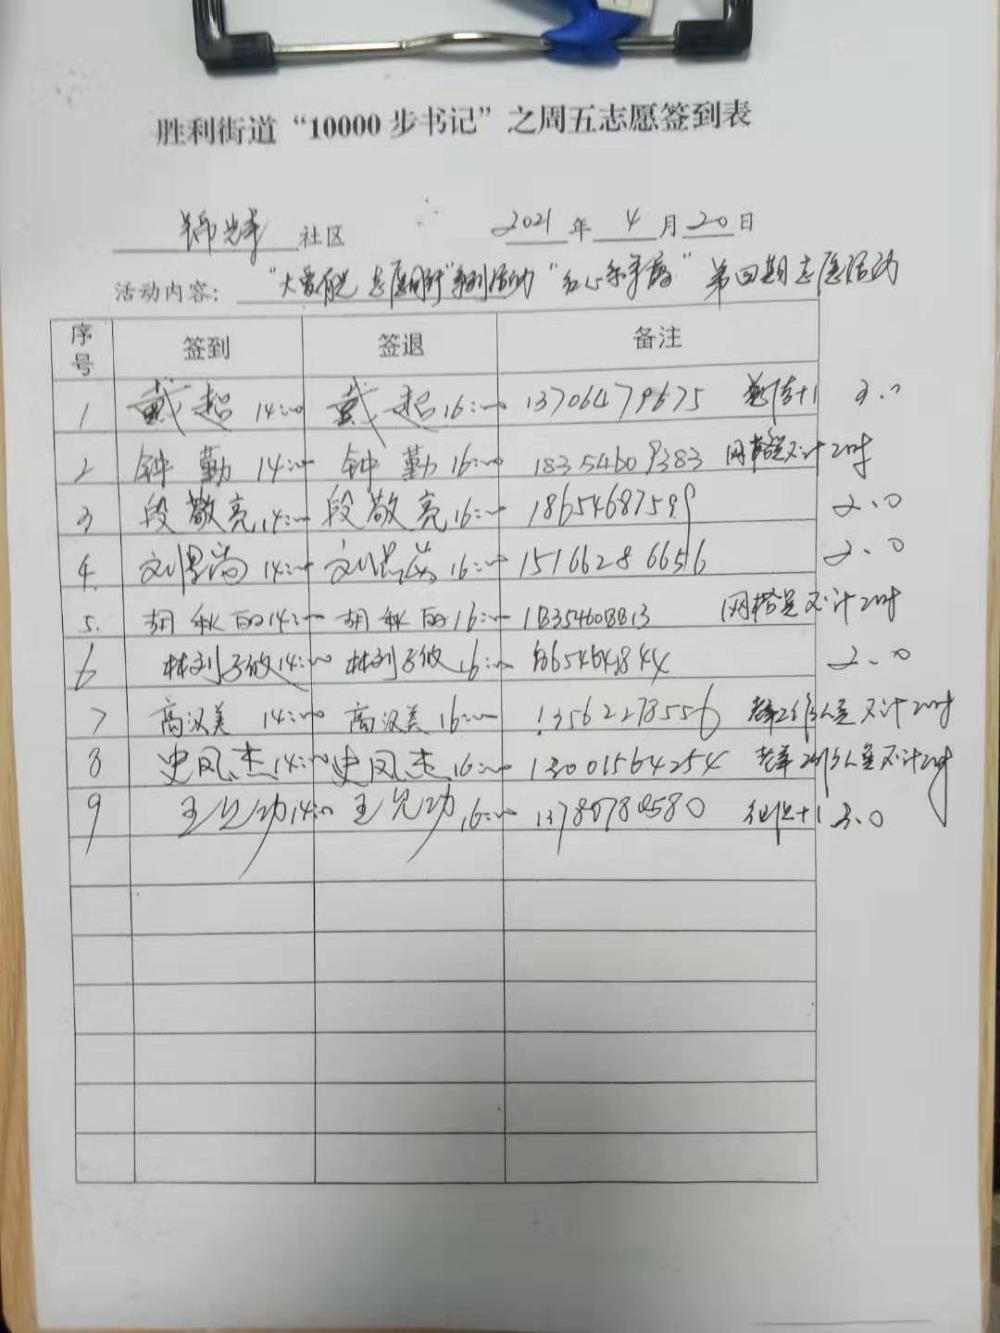 胜利街道“10000步书记”之周五志愿签到表
锦华 社区 2021 年 4 月 20 日
活动内容： “大爱有光 志愿同行”系列活动 “ ” 第四期志愿活动
序号 签到 签退 备注
1 戴超 14:00 戴超 16:00 13706479675 +1 3.0
2 钟勤 14:00 钟勤 16:00 18354609383 网格员不计2小时
3 段敬亮 14:00 段敬亮 16:00 18654687599 2.0
4. 刘思尚 14:00 刘思尚 16:00 15166286656 2.0
5. 胡秋 14:00 胡秋 16:00 18354608813 网格员不计2小时
6 林刘子 14:00 林刘子 16:00 2.0
7 高汉美 14:00 高汉美 16:00 13562278556 不计2小时
8 史凤杰 14:00 史凤杰 16:00 13001564254 不计2小时
9 王 功 14:00 王 功 16:00 +1 3.0